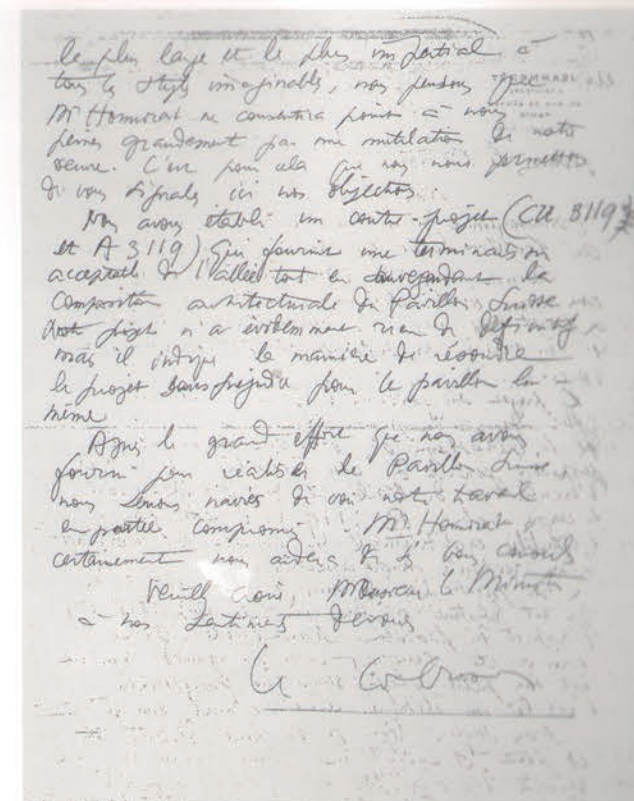 le plus large et le plus impartial à
tous les styles imaginables, nous pensons que
Mr Honnorat ne consentira point à nous
peiner grandement par une mutilation de notre
oeuvre. C'est pour cela que nous nous permettons
de vous signaler ici nos objections.
Nous avons établi un contre-projet (CU 3119
et A 3119) qui fournit une terminaison
acceptable de l'allée tout en sauvegardant la
composition architecturale du Pavillon Suisse
Notre projet n'a évidemment rien de définitif
mais il indique la manière de résoudre
le projet sans préjudice pour le pavillon lui-
même
Après le grand effort que nous avons
fourni pour réaliser le Pavillon Suisse,
nous serions navrés de voir notre travail
en partie compromis. Mr. Honnorat
certainement nous aidera de ses bons conseils
Veuillez croire, Monsieur le Ministre,
à nos sentiments dévoués
Le Corbusier